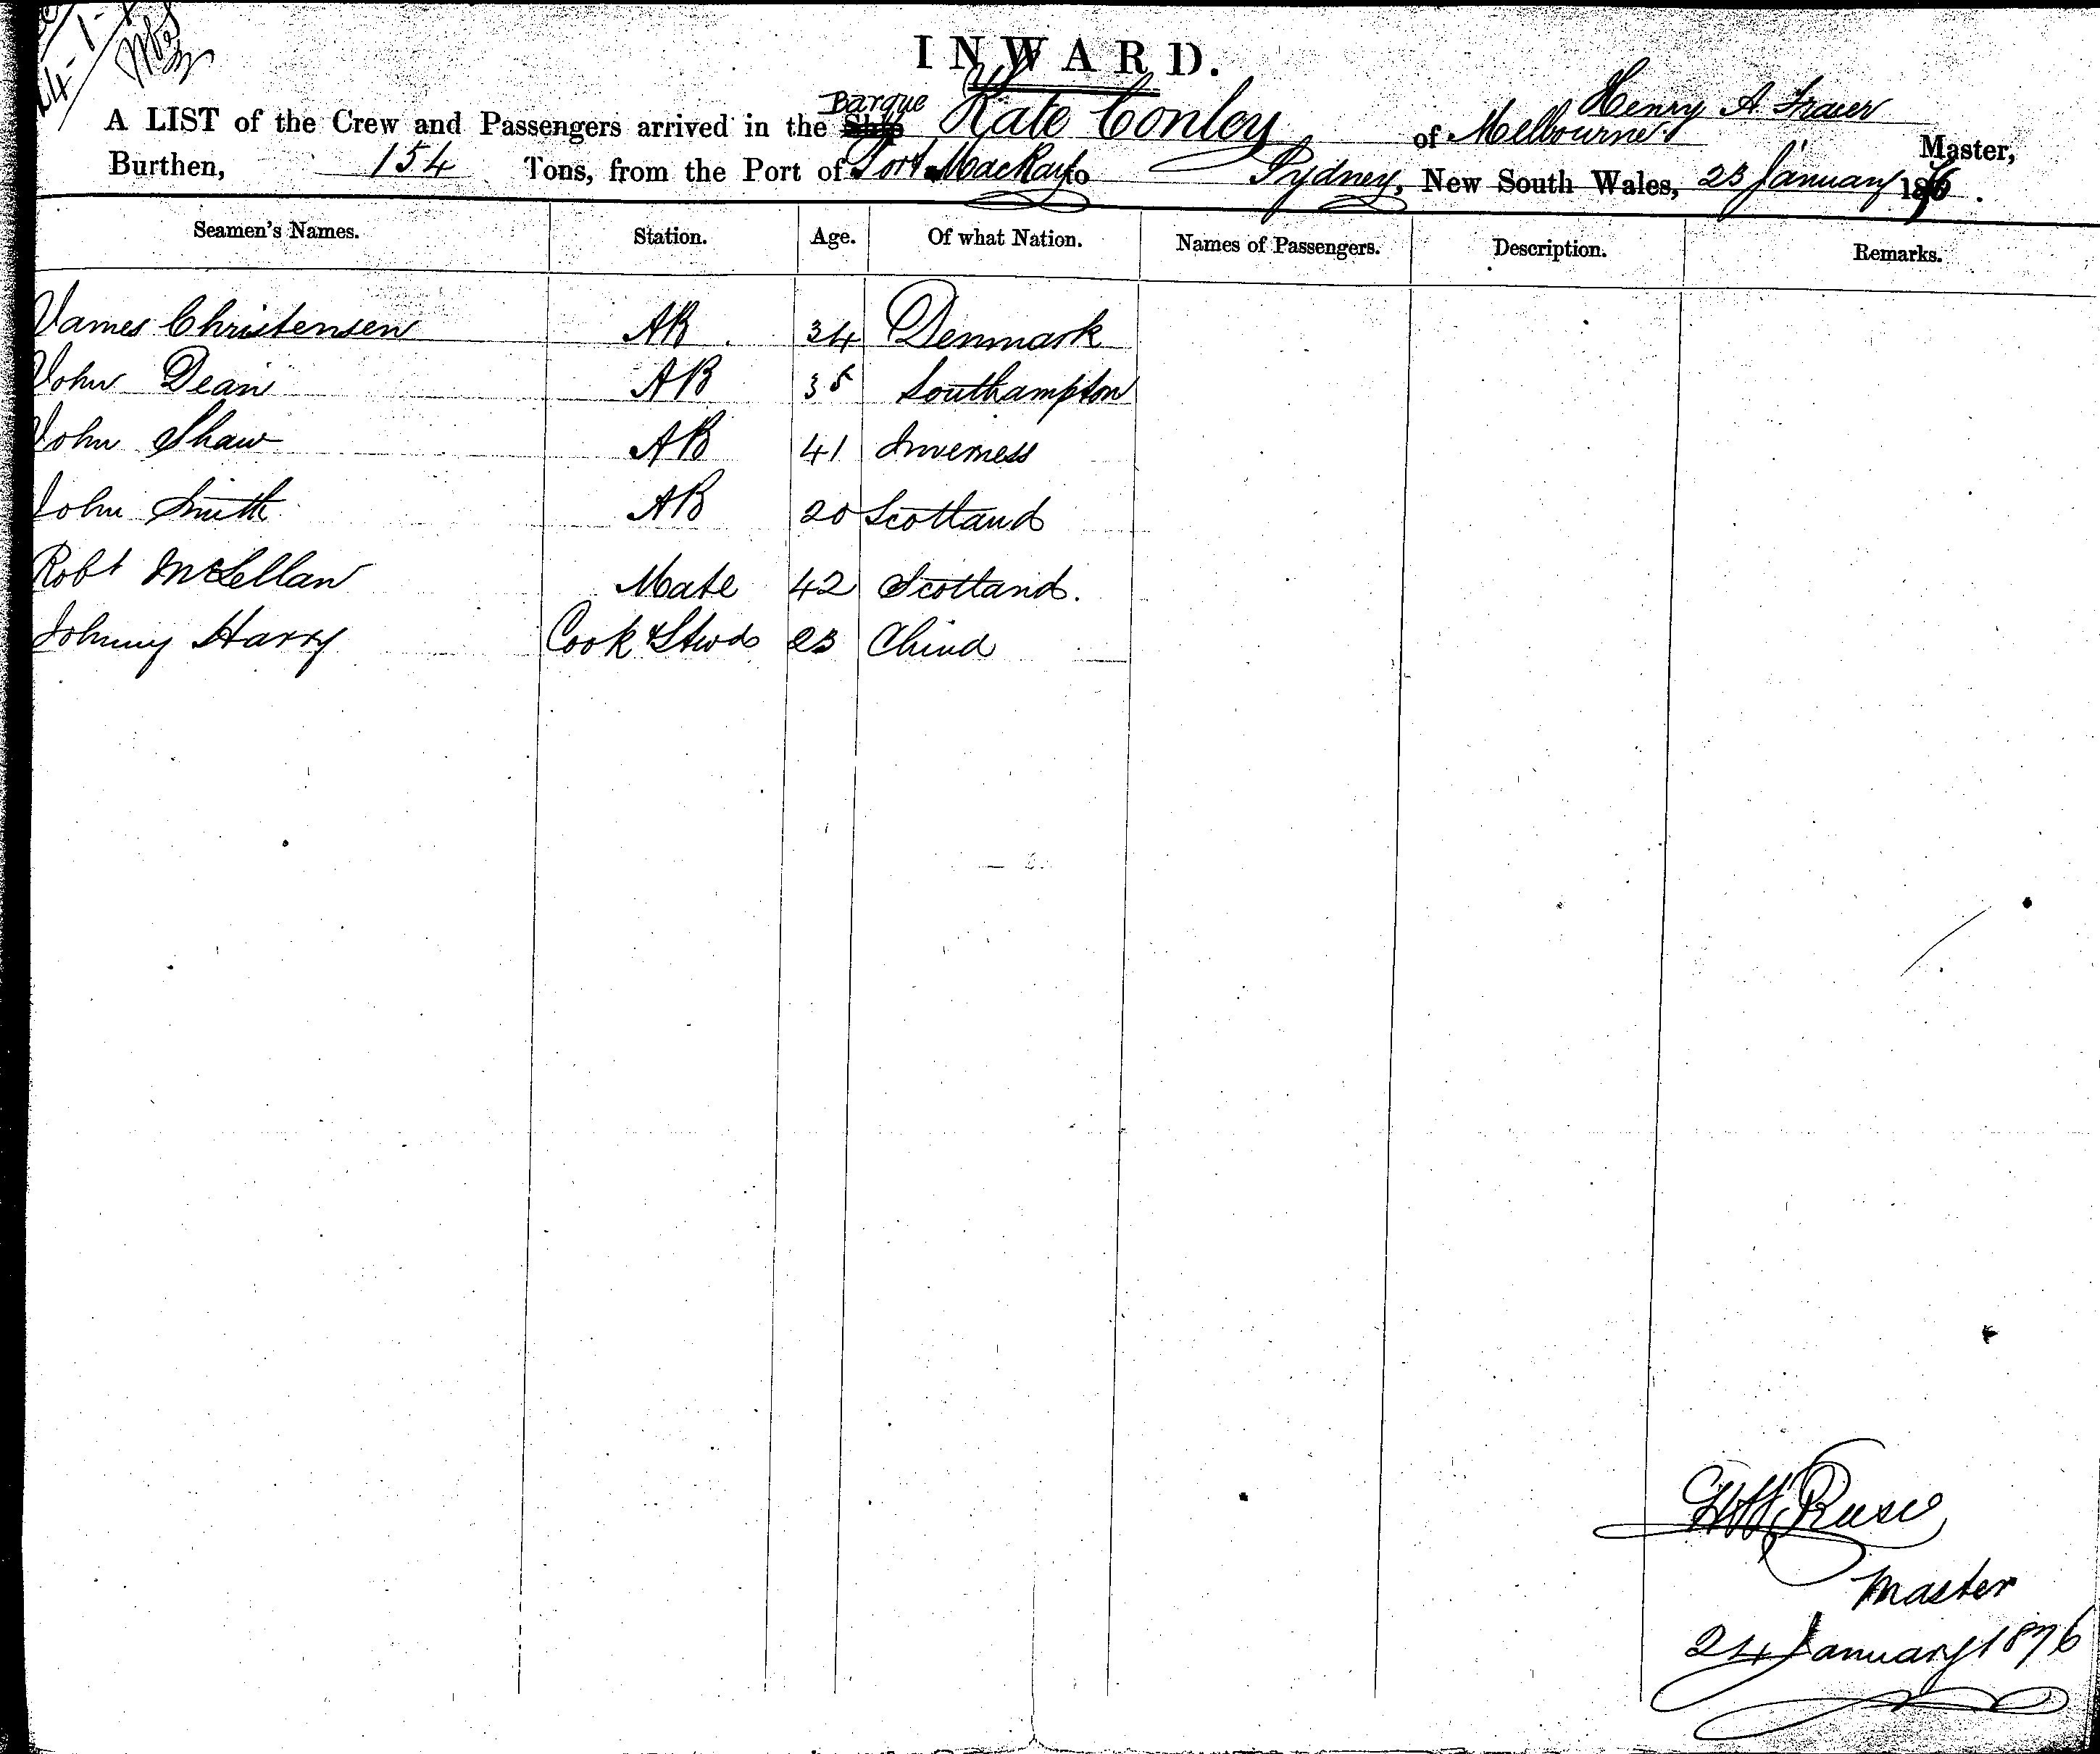 24-1-
INWARD.
A LIST of the Crew and Passengers arrived in the Ship Barque Kate Conley of Melbourne Henry A Fraser Master,
Burthen, 154 Tons, from the Port of Port Mackay to Sydney, New South Wales, 23 January 1876.
Seamen's Names. Station. Age. Of what Nation. Names of Passengers. Description. Remarks.
James Christensen AB 34 Denmark
John Dean AB 35 Southampton
John Shaw AB 41 Inverness
John Smith AB 20 Scotland
Robt McLellan Mate 42 Scotland.
Johnny Harry Cook & Stwd 23 China
Master
24 January 1876